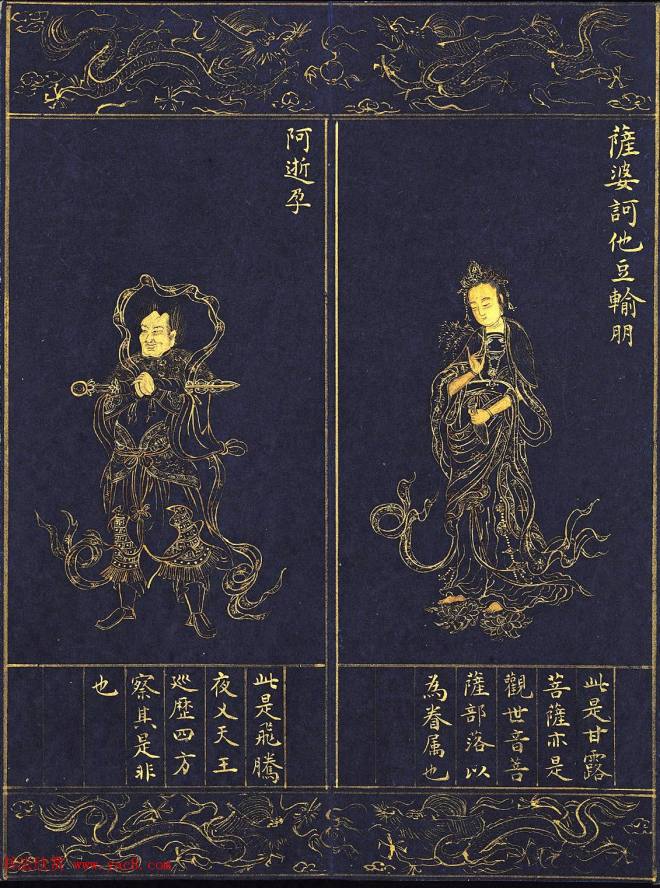 薩婆訶他豆輸朋
此是甘露
菩薩亦是
觀世音菩
薩部落以
為眷属也
阿逝孕
此是飛騰
夜乂天王
巡歷四方
察其是非
也
www.yac8.com